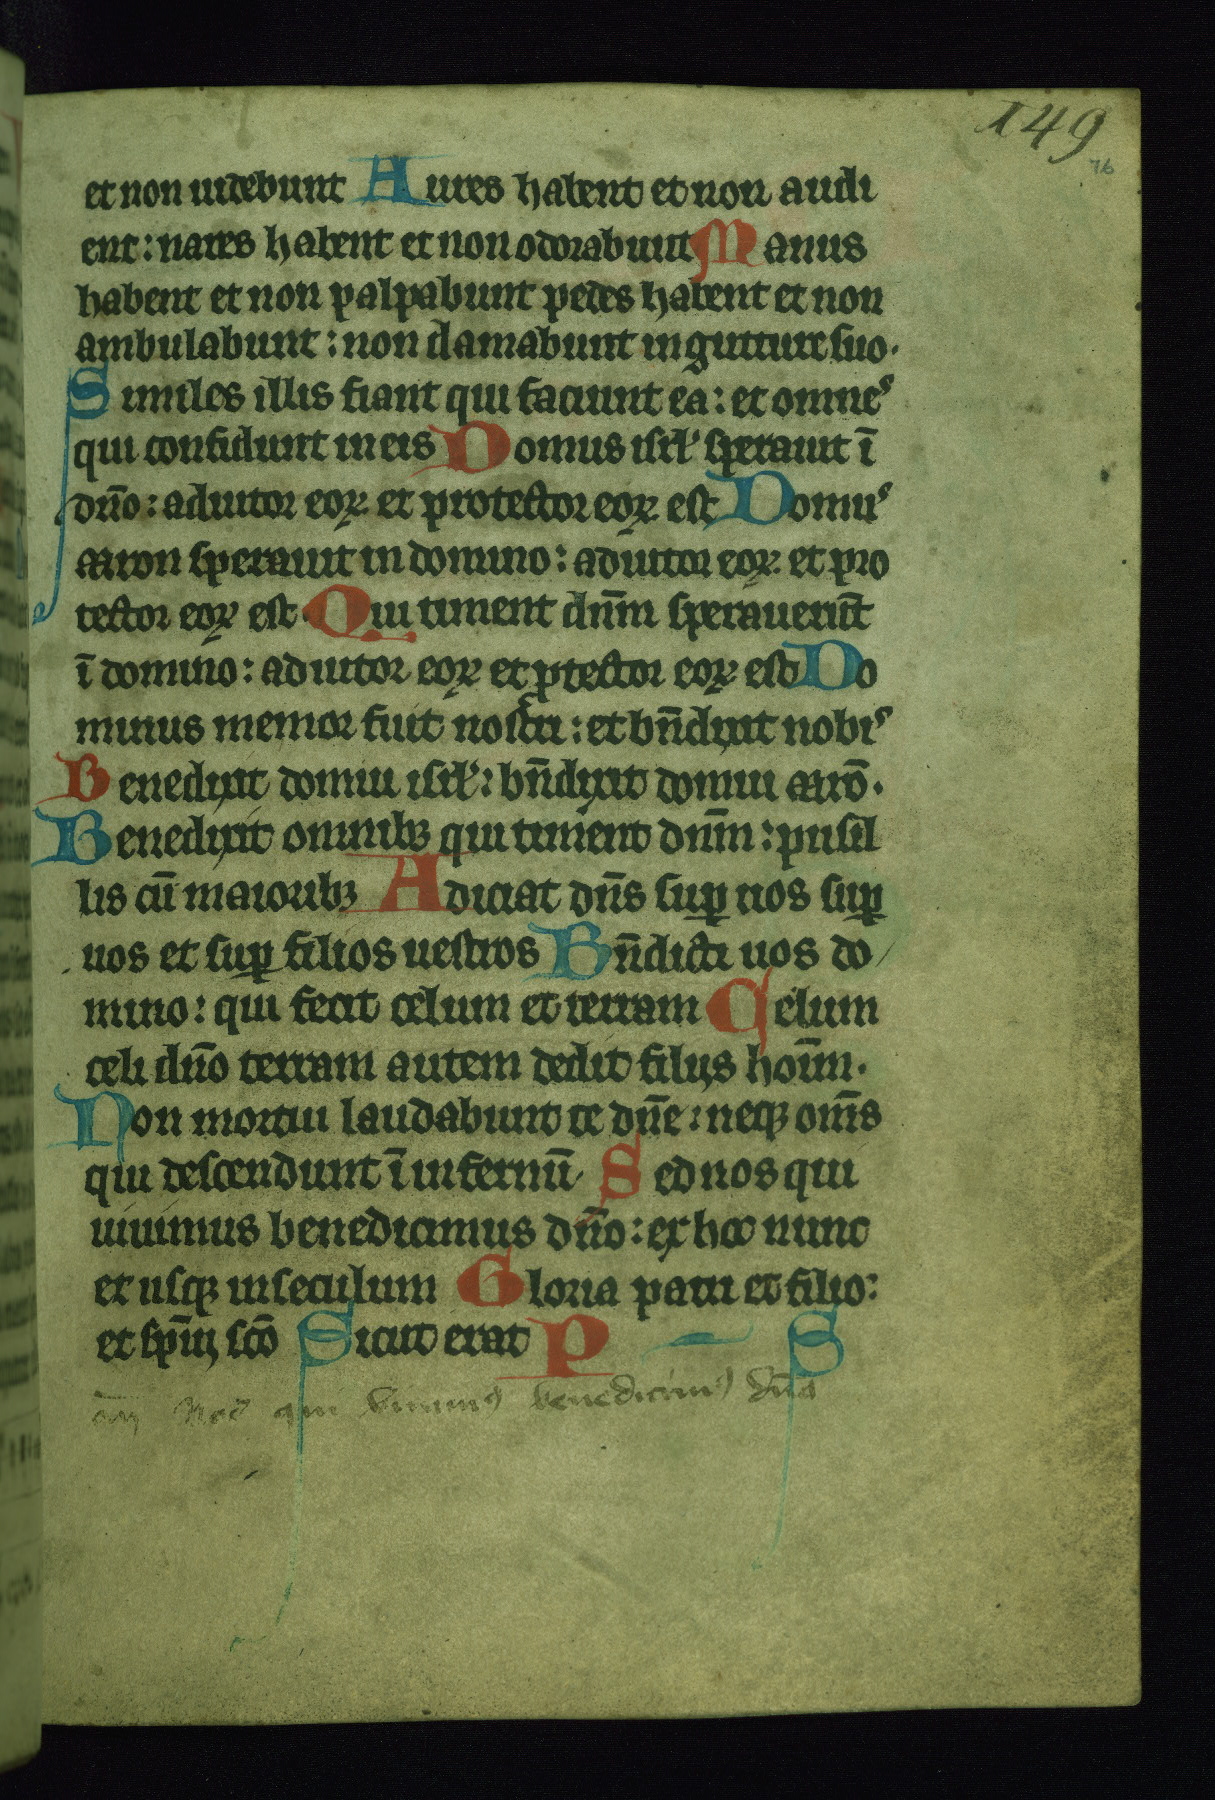 149
76
et non uidebunt Aures habent et non audi
ent: nares habent et non odorabunt Manus
habent et non palpabunt pedes habent et non
ambulabunt: non clamabunt in gutture suo.
Similes illis fiant qui faciunt ea: et omnes
qui confidunt in eis Domus isrl' sperauit ī
dn̄o: adiutor eoꝝ et protector eoꝝ est Domus
aaron sperauit in domino: adiutor eoꝝ et pro
tector eoꝝ est Qui timent dn̄m sperauer̄t
ī domino: adiutor eoꝝ et ꝓtector eoꝝ est Do
minus memor fuit nostri: et bn̄dixit nobis
Benedixit domui isrl': bn̄dixit domui aarō.
Benedixit omnibꝫ qui timent dnm̄: pusil
lis cū maioribꝫ Adiciat dn̄s suꝑ uos suꝑ
uos et suꝑ filios uestros Bn̄dicti uos do
mino: qui fecit celum et terram Celum
celi dn̄o terram autem dedit filijs hoīm.
Non mortui laudabunt te dn̄e: neqꝫ om̄s
qui descendunt ī infernū Sed nos qui
uiuimus benedicimus dn̄o: ex hoc nunc
et usqꝫ in seculum Gloria patri et filio:
et spīui scō Sicut erat P S
Nos qui viuimꝰ benedicimꝰ dn̄o